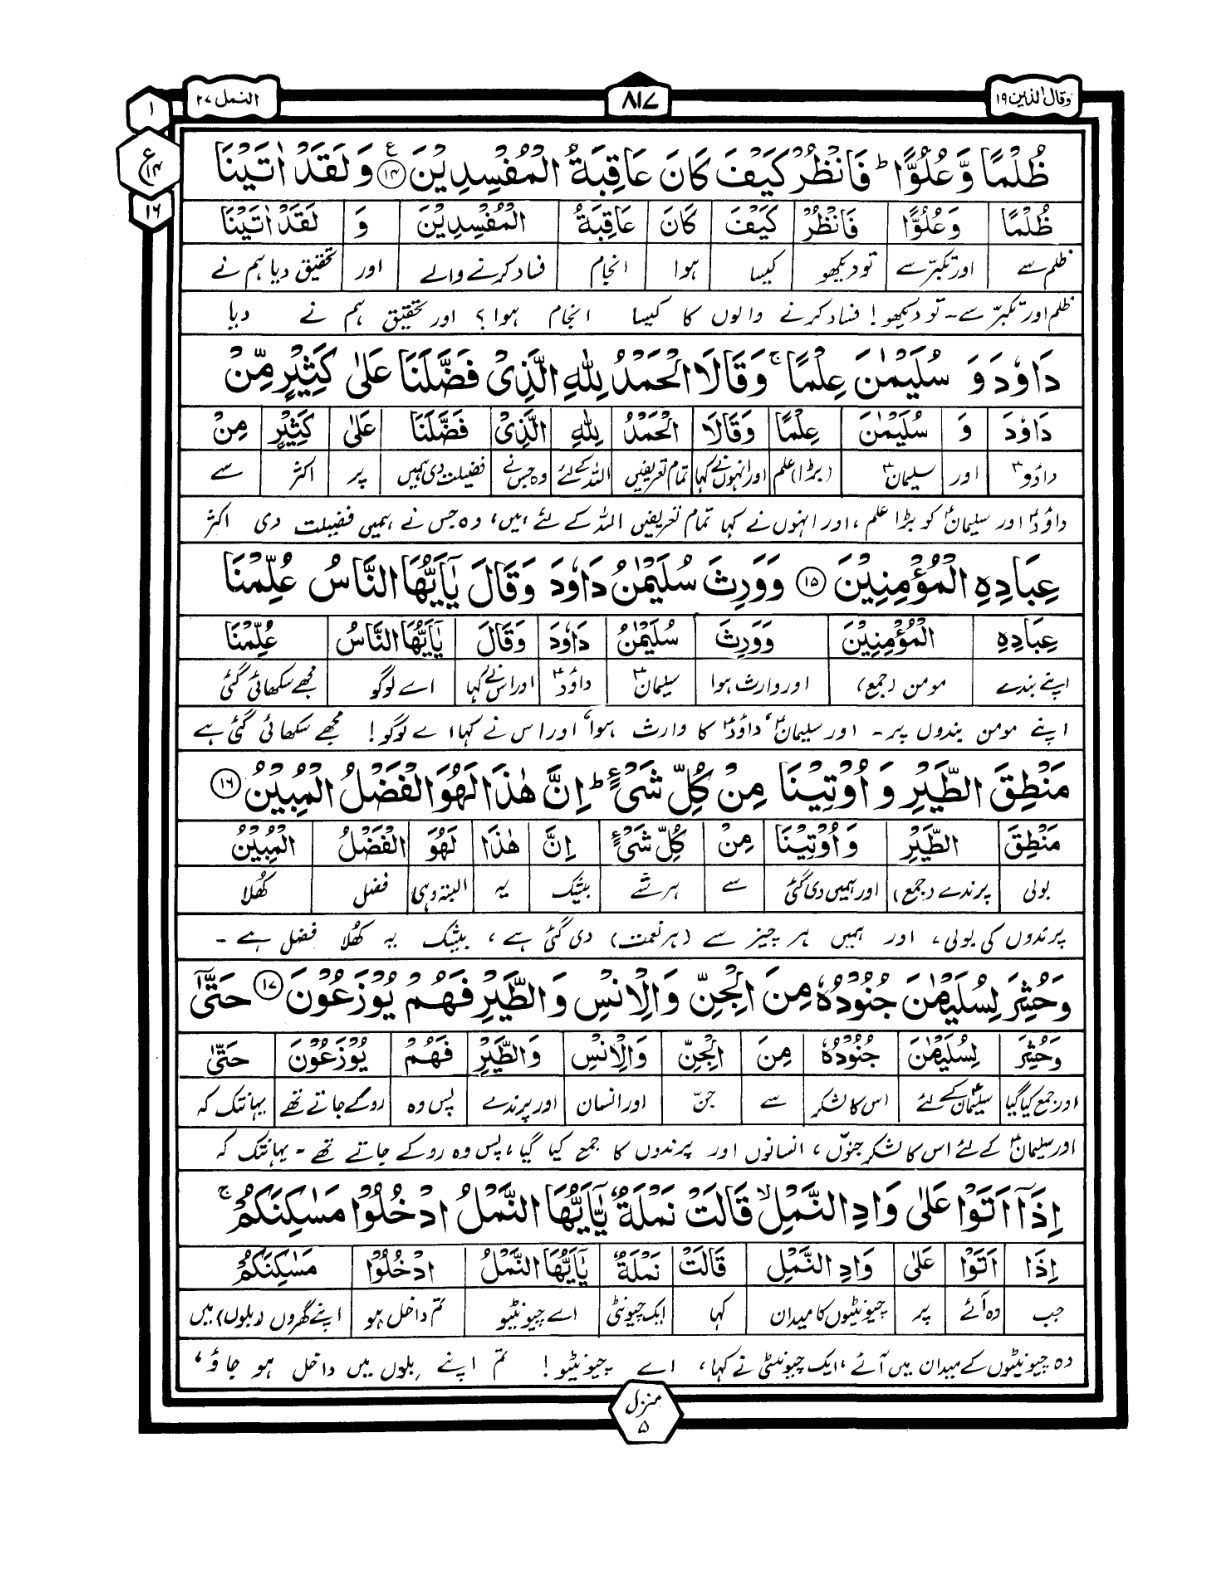 وقال الذين ۱۹
۸۱۷
النمل ۲۷
۱
ع
۱۴
۱۶
ظُلْمًا وَّعُلُوًّا ؕ فَانْظُرْ كَيْفَ كَانَ عَاقِبَةُ الْمُفْسِدِيْنَ ۝۱۴ ع وَلَقَدْ اٰتَيْنَا
ظُلْمًا وَعُلُوًّا فَانْظُرْ كَيْفَ كَانَ عَاقِبَةُ الْمُفْسِدِيْنَ وَ لَقَدْ اٰتَيْنَا
ظلم سے اور تکبر سے تو دیکھو کیسا ہوا انجام فساد کرنے والے اور تحقیق دیا ہم نے
ظلم اور تکبر سے۔ تو دیکھو! فساد کرنے والوں کا کیسا انجام ہوا؟ اور تحقیق ہم نے دیا
دَاوٗدَ وَ سُلَيْمٰنَ عِلْمًا ۚ وَقَالَا الْحَمْدُ لِلّٰهِ الَّذِيْ فَضَّلَنَا عَلٰى كَثِيْرٍ مِّنْ
دَاوٗدَ وَ سُلَيْمٰنَ عِلْمًا وَقَالَا الْحَمْدُ لِلّٰهِ الَّذِيْ فَضَّلَنَا عَلٰى كَثِيْرٍ مِنْ
داؤدؑ اور سلیمانؑ (بڑا) علم اور انہوں نے کہا تمام تعریفیں اللہ کے لئے وہ جس نے فضیلت دی ہمیں پر اکثر سے
داؤدؑ اور سلیمانؑ کو بڑا علم، اور انہوں نے کہا تمام تعریفیں اللہ کے لئے ہیں، وہ جس نے ہمیں فضیلت دی اکثر
عِبَادِهِ الْمُؤْمِنِيْنَ ۝۱۵ وَوَرِثَ سُلَيْمٰنُ دَاوٗدَ وَقَالَ يٰۤاَيُّهَا النَّاسُ عُلِّمْنَا
عِبَادِهِ الْمُؤْمِنِيْنَ وَوَرِثَ سُلَيْمٰنُ دَاوٗدَ وَقَالَ يٰۤاَيُّهَا النَّاسُ عُلِّمْنَا
اپنے بندے مومن (جمع) اور وارث ہوا سلیمانؑ داؤدؑ اور اس نے کہا اے لوگو مجھے سکھائی گئی
اپنے مومن بندوں پر۔ اور سلیمانؑ داؤدؑ کا وارث ہوا، اور اس نے کہا اے لوگو! مجھے سکھائی گئی ہے
مَنْطِقَ الطَّيْرِ وَاُوْتِيْنَا مِنْ كُلِّ شَيْءٍ ؕ اِنَّ هٰذَا لَهُوَ الْفَضْلُ الْمُبِيْنُ ۝۱۶
مَنْطِقَ الطَّيْرِ وَاُوْتِيْنَا مِنْ كُلِّ شَيْءٍ اِنَّ هٰذَا لَهُوَ الْفَضْلُ الْمُبِيْنُ
بولی پرندے (جمع) اور ہمیں دی گئی سے ہر شے بیشک یہ البتہ وہی فضل کھلا
پرندوں کی بولی، اور ہمیں ہر چیز سے (ہر نعمت) دی گئی ہے، بیشک یہ کھلا فضل ہے۔
وَحُشِرَ لِسُلَيْمٰنَ جُنُوْدُهٗ مِنَ الْجِنِّ وَالْاِنْسِ وَالطَّيْرِ فَهُمْ يُوْزَعُوْنَ ۝۱۷ حَتّٰۤى
وَحُشِرَ لِسُلَيْمٰنَ جُنُوْدُهٗ مِنَ الْجِنِّ وَالْاِنْسِ وَالطَّيْرِ فَهُمْ يُوْزَعُوْنَ حَتّٰى
اور جمع کیا گیا سلیمانؑ کے لئے اس کا لشکر سے جن اور انسان اور پرندے پس وہ روکے جاتے تھے یہانتک کہ
اور سلیمانؑ کے لئے اس کا لشکر جنوں، انسانوں اور پرندوں کا جمع کیا گیا، پس وہ روکے جاتے تھے۔ یہانتک کہ
اِذَاۤ اَتَوْا عَلٰى وَادِ النَّمْلِ ۙ قَالَتْ نَمْلَةٌ يّٰۤاَيُّهَا النَّمْلُ ادْخُلُوْا مَسٰكِنَكُمْ ۚ
اِذَا اَتَوْا عَلٰى وَادِ النَّمْلِ قَالَتْ نَمْلَةٌ يٰۤاَيُّهَا النَّمْلُ ادْخُلُوْا مَسٰكِنَكُمْ
جب وہ آئے پر چیونٹیوں کا میدان کہا ایک چیونٹی اے چیونٹیو تم داخل ہو اپنے گھروں (بلوں) میں
وہ چیونٹیوں کے میدان میں آئے، ایک چیونٹی نے کہا، اے چیونٹیو! تم اپنے بلوں میں داخل ہو جاؤ،
منزل
۵